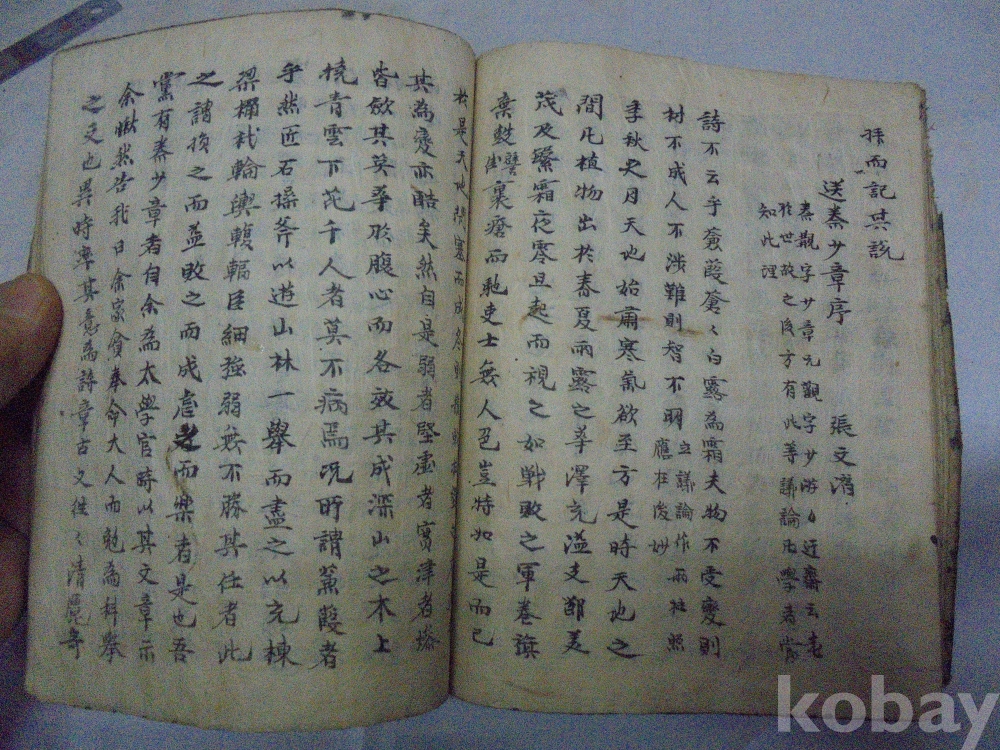 拝而記其説
送秦少章序 張文潛
秦觀字少章元觀字少游迂齋云老
於世故之後方有此等議論凡學者當
知此理
詩不云乎蒹葭蒼〻白露爲霜夫物不受變則
材不成人不涉難則智不明 立議論作兩柱照應在後妙
季秋之月天地始肅寒氣欲至方是時天地之
間凡植物出於春夏雨露之華澤充溢支節美
茂及繁霜夜零旦起而視之如戰敗之軍卷旗
棄鼓 裹瘡而馳吏士無人色豈特如是而已
於是天地閉塞而成冬則
其爲變亦酷矣然自是弱者堅虛者實津者燥
皆斂其英華於腹心而各效其成深山之木上
撓青雲下芘千人者莫不病焉况所謂蒹葭者
乎然匠石操斧以遊山林一擧而盡之以充棟
梁桷杙輪輿輹輻巨細强弱無不勝其任者此
之謂損之而益敗之而成虐之而樂者是也吾
黨有秦少章者自余爲太學官時以其文章示
余愀然告我曰余家貧奉命大人而勉爲科擧
之文也異時率其意爲詩章古文往〻清麗奇
kobay